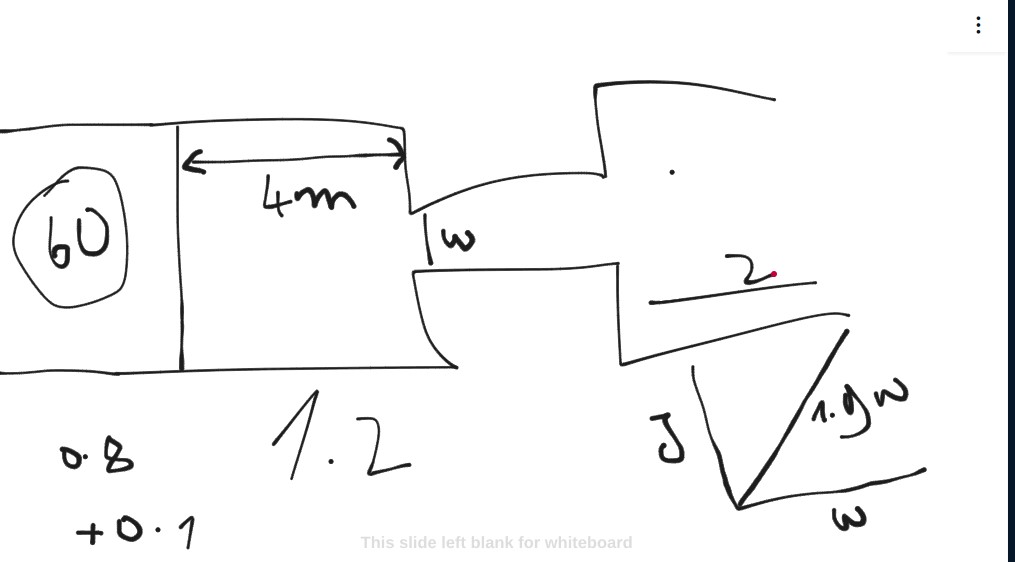 60
4m
w
2
1.2
J
1.9w
w
0.8
+0.1
This slide left blank for whiteboard